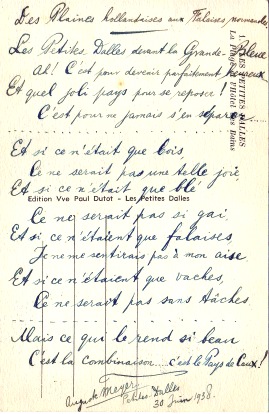 Des Plaines hollandaises aux Falaises normandes
Les Petites Dalles devant la Grande Bleue,
Ah! C'est pour devenir parfaitement heureux
Et quel joli pays pour se reposer!
C'est pour ne jamais s'en séparer....
Et si ce n'était que bois,
Ce ne serait pas une telle joie
Et si ce n'était que blé
Ce ne serait pas si gai.
Et si ce n'étaient que falaises,
Je ne me sentirais pas à mon aise
Et si ce n'étaient que vaches,
Ce ne serait pas sans tâches
Mais ce qui le rend si beau
C'est la combinaison.... c'est le Pays de Caux!
Auguste Meyer
Petites-Dalles
30 Juin 1938.
Edition Vve Paul Dutot - Les Petites Dalles
LES PETITES DALLES
La Plage l'Hôtel des Bains